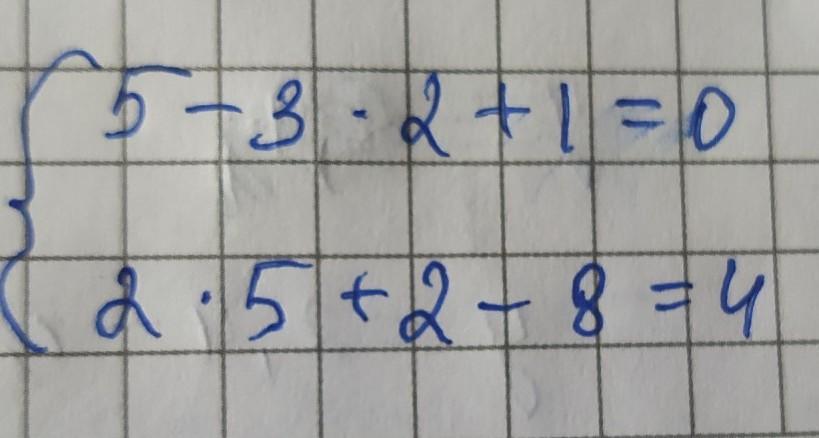 5 - 3 · 2 + 1 = 0
2 · 5 + 2 - 8 = 4